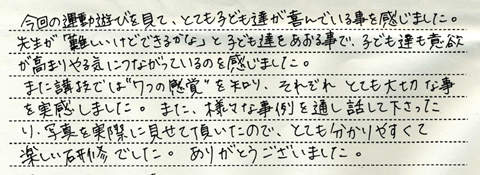 今回の運動遊びを見て、とても子ども達が喜んでいる事を感じました。
先生が「難しいけどできるかな」と子ども達をあおる事で、子ども達も意欲
が高まりやる気につながっているのを感じました。
また講技では"7つの感覚"を知り、それぞれとても大切な事
を実感しました。また、様々な事例を通し話して下さった
り、写真を実際に見せて頂いたので、とても分かりやすくて
楽しい研修でした。ありがとうございました。